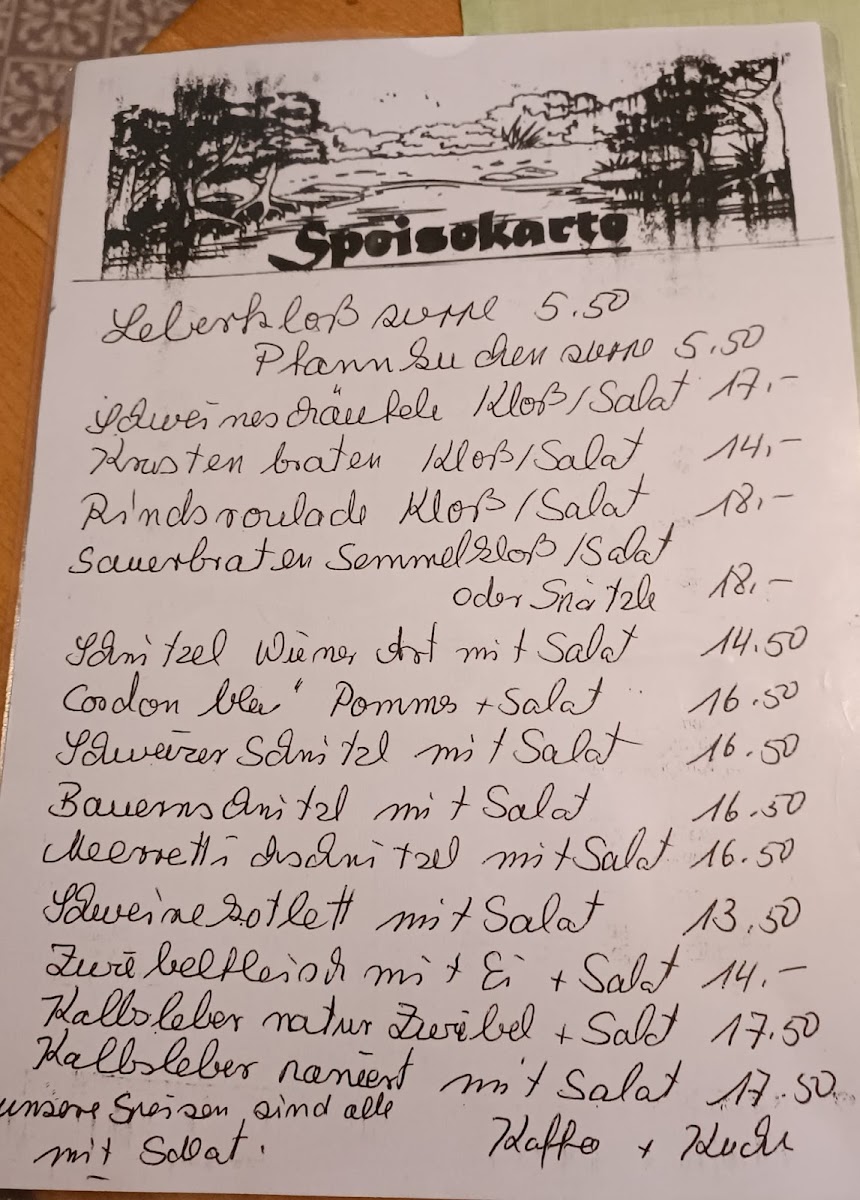 Speisekarte
Leberkloß suppe 5.50
Pfannkuchen suppe 5.50
Schweineschäufele Kloß/Salat 17,-
Krustenbraten Kloß/Salat 14,-
Rindsroulade Kloß/Salat 18,-
Sauerbraten Semmelkloß/Salat
oder Spätzle 18,-
Schnitzel Wiener Art mit Salat 14.50
Cordon bleu" Pommes + Salat 16.50
Schweizer Schnitzl mit Salat 16.50
Bauernschnitzl mit Salat 16.50
Meerrettichschnitzel mit Salat 16.50
Schweinekotlett mit Salat 13.50
Zwiebelfleisch mit Ei + Salat 14.-
Kalbsleber natur Zwiebel + Salat 17.50
Kalbsleber paniert mit Salat 17.50
unsere Speisen sind alle
mit Salat.
Kaffee + Kuchen